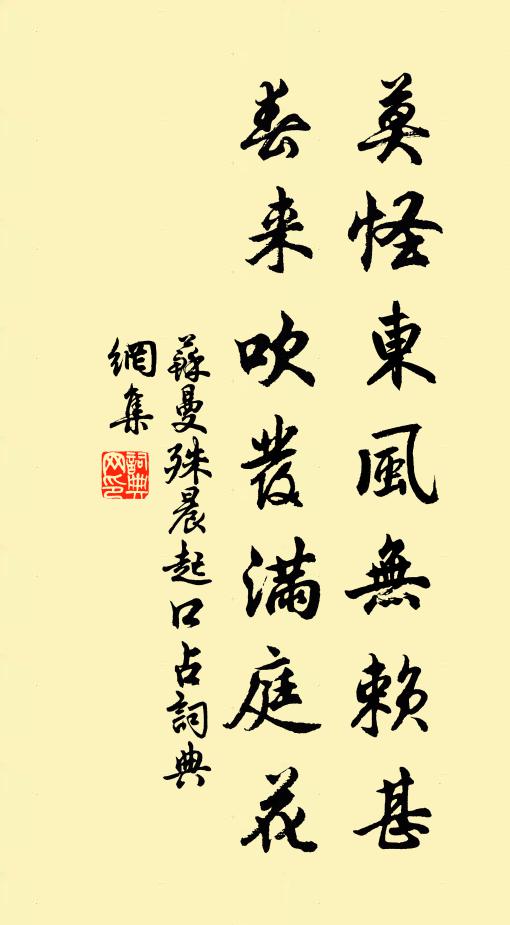 莫怪東風無賴甚
春来吹發滿庭花
蘇曼殊晨起口占詞典
網集
詞典網印